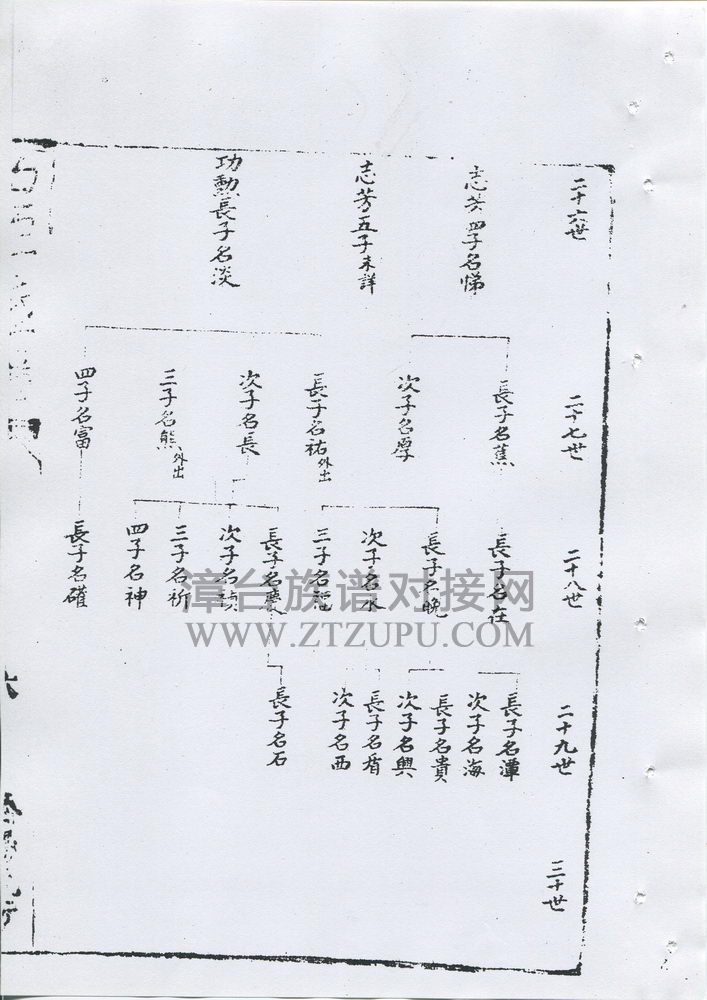 二十六世
志芳四子名悌
志芳五子未詳
功勲長子名淡
二十七世
長子名蕉
次子名厚
長子名祐外出
次子名長
三子名熊外出
四子名富
二十八世
長子名在
長子名晩
次子名水
三子名
長子名慶
次子名禎
三子名祈
四子名神
長子名確
二十九世
長子名潭
次子名海
長子名貴
次子名興
長子名盾
次子名西
長子名石
三十世
漳台族谱对接网
WWW.ZTZUPU.COM